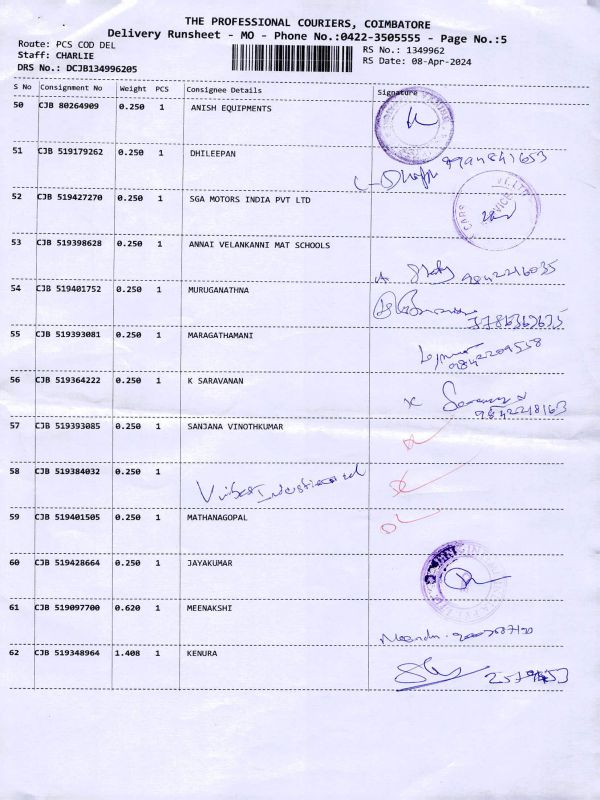 THE PROFESSIONAL COURIERS, COIMBATORE
Delivery Runsheet - MO - Phone No.:0422-3505555 - Page No.:5
Route: PCS COD DEL RS No.: 1349962
Staff: CHARLIE RS Date: 08-Apr-2024
DRS No.: DCJB134996205
S No Consignment No Weight PCS Consignee Details Signature
50 CJB 80264909 0.250 1 ANISH EQUIPMENTS
51 CJB 519179262 0.250 1 DHILEEPAN
52 CJB 519427270 0.250 1 SGA MOTORS INDIA PVT LTD
53 CJB 519398628 0.250 1 ANNAI VELANKANNI MAT SCHOOLS 9842216035
54 CJB 519401752 0.250 1 MURUGANATHNA
55 CJB 519393081 0.250 1 MARAGATHAMANI 9842209558
56 CJB 519364222 0.250 1 K SARAVANAN 9842218163
57 CJB 519393085 0.250 1 SANJANA VINOTHKUMAR
58 CJB 519384032 0.250 1
59 CJB 519401505 0.250 1 MATHANAGOPAL
60 CJB 519428664 0.250 1 JAYAKUMAR
61 CJB 519097700 0.620 1 MEENAKSHI
62 CJB 519348964 1.408 1 KENURA